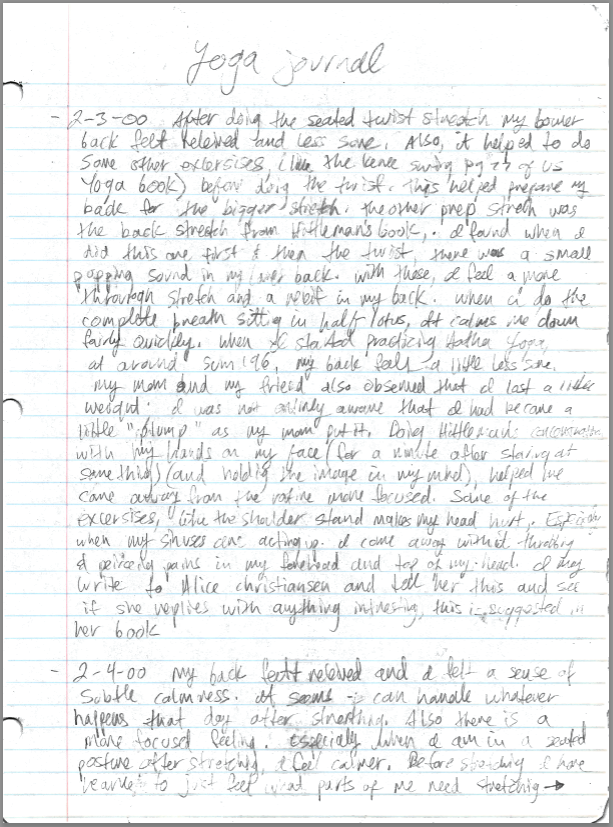 Yoga journal
- 2-3-00 After doing the seated twist stretch my lower
back felt releived and less sore. Also, it helped to do
some other excersises, (like the knee swing pg 77 of US
Yoga book) before doing the twist. this helped prepare my
back for the bigger stretch. the other prep stretch was
the back stretch from Hittleman's book,. I found when I
did this one first & then the twist, there was a small
popping sound in my lower back. with these, I feel a more
through stretch and a in my back. when I do the
complete breath sitting in half lotus, It calms me down
fairly quickly. when I started practicing Hatha Yoga,
at around sum '96, my back felt a little less sore.
my mom and my friend also observed that I lost a little
weight. I was not entirely aware that I had became a
little "plump" as my mom put it. Doing Hittleman's concentration
with my hands on my face (for a minute after staring at
something) (and holding the image in my mind), helped me
come away from the rotine more focused. Some of the
excersises, like the shoulder stand makes my head hurt. Especially
when my sinuses are acting up. I come away with throbing
& peircing pains in my forehead and top of my head. I may
write to Alice christiansen and tell her this and see
if she replies with anything intresting, this is suggested in
her book
- 2-4-00 my back felt releived and I felt a sense of
subtle calmness. It seems I can handle whatever
happens that day after stretching. Also there is a
more focused feeling. Especially when I am in a seated
posture after stretching, I feel calmer. Before stretching I have
learned to just feel what parts of me need stretching →